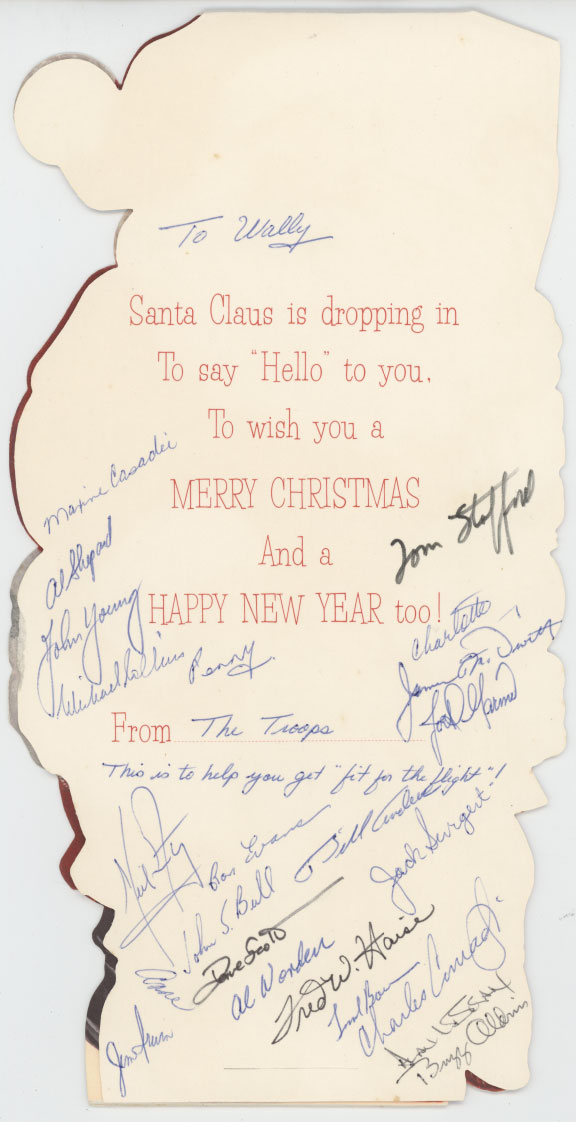 To Wally
Santa Claus is dropping in
To say "Hello" to you,
To wish you a
Maxine Casadei
MERRY CHRISTMAS
Tom Stafford
Al Shepard
And a
John Young
HAPPY NEW YEAR too!
Charlotte
Michael Collins
Penny
From The Troops
This is to help you get "fit for the flight"!
Ron Evans
Bill Anders
Jack Swigert
John S. Bull
Dave Scott
Al Worden
Fred W. Haise
Charles Conrad Jr.
Buzz Aldrin